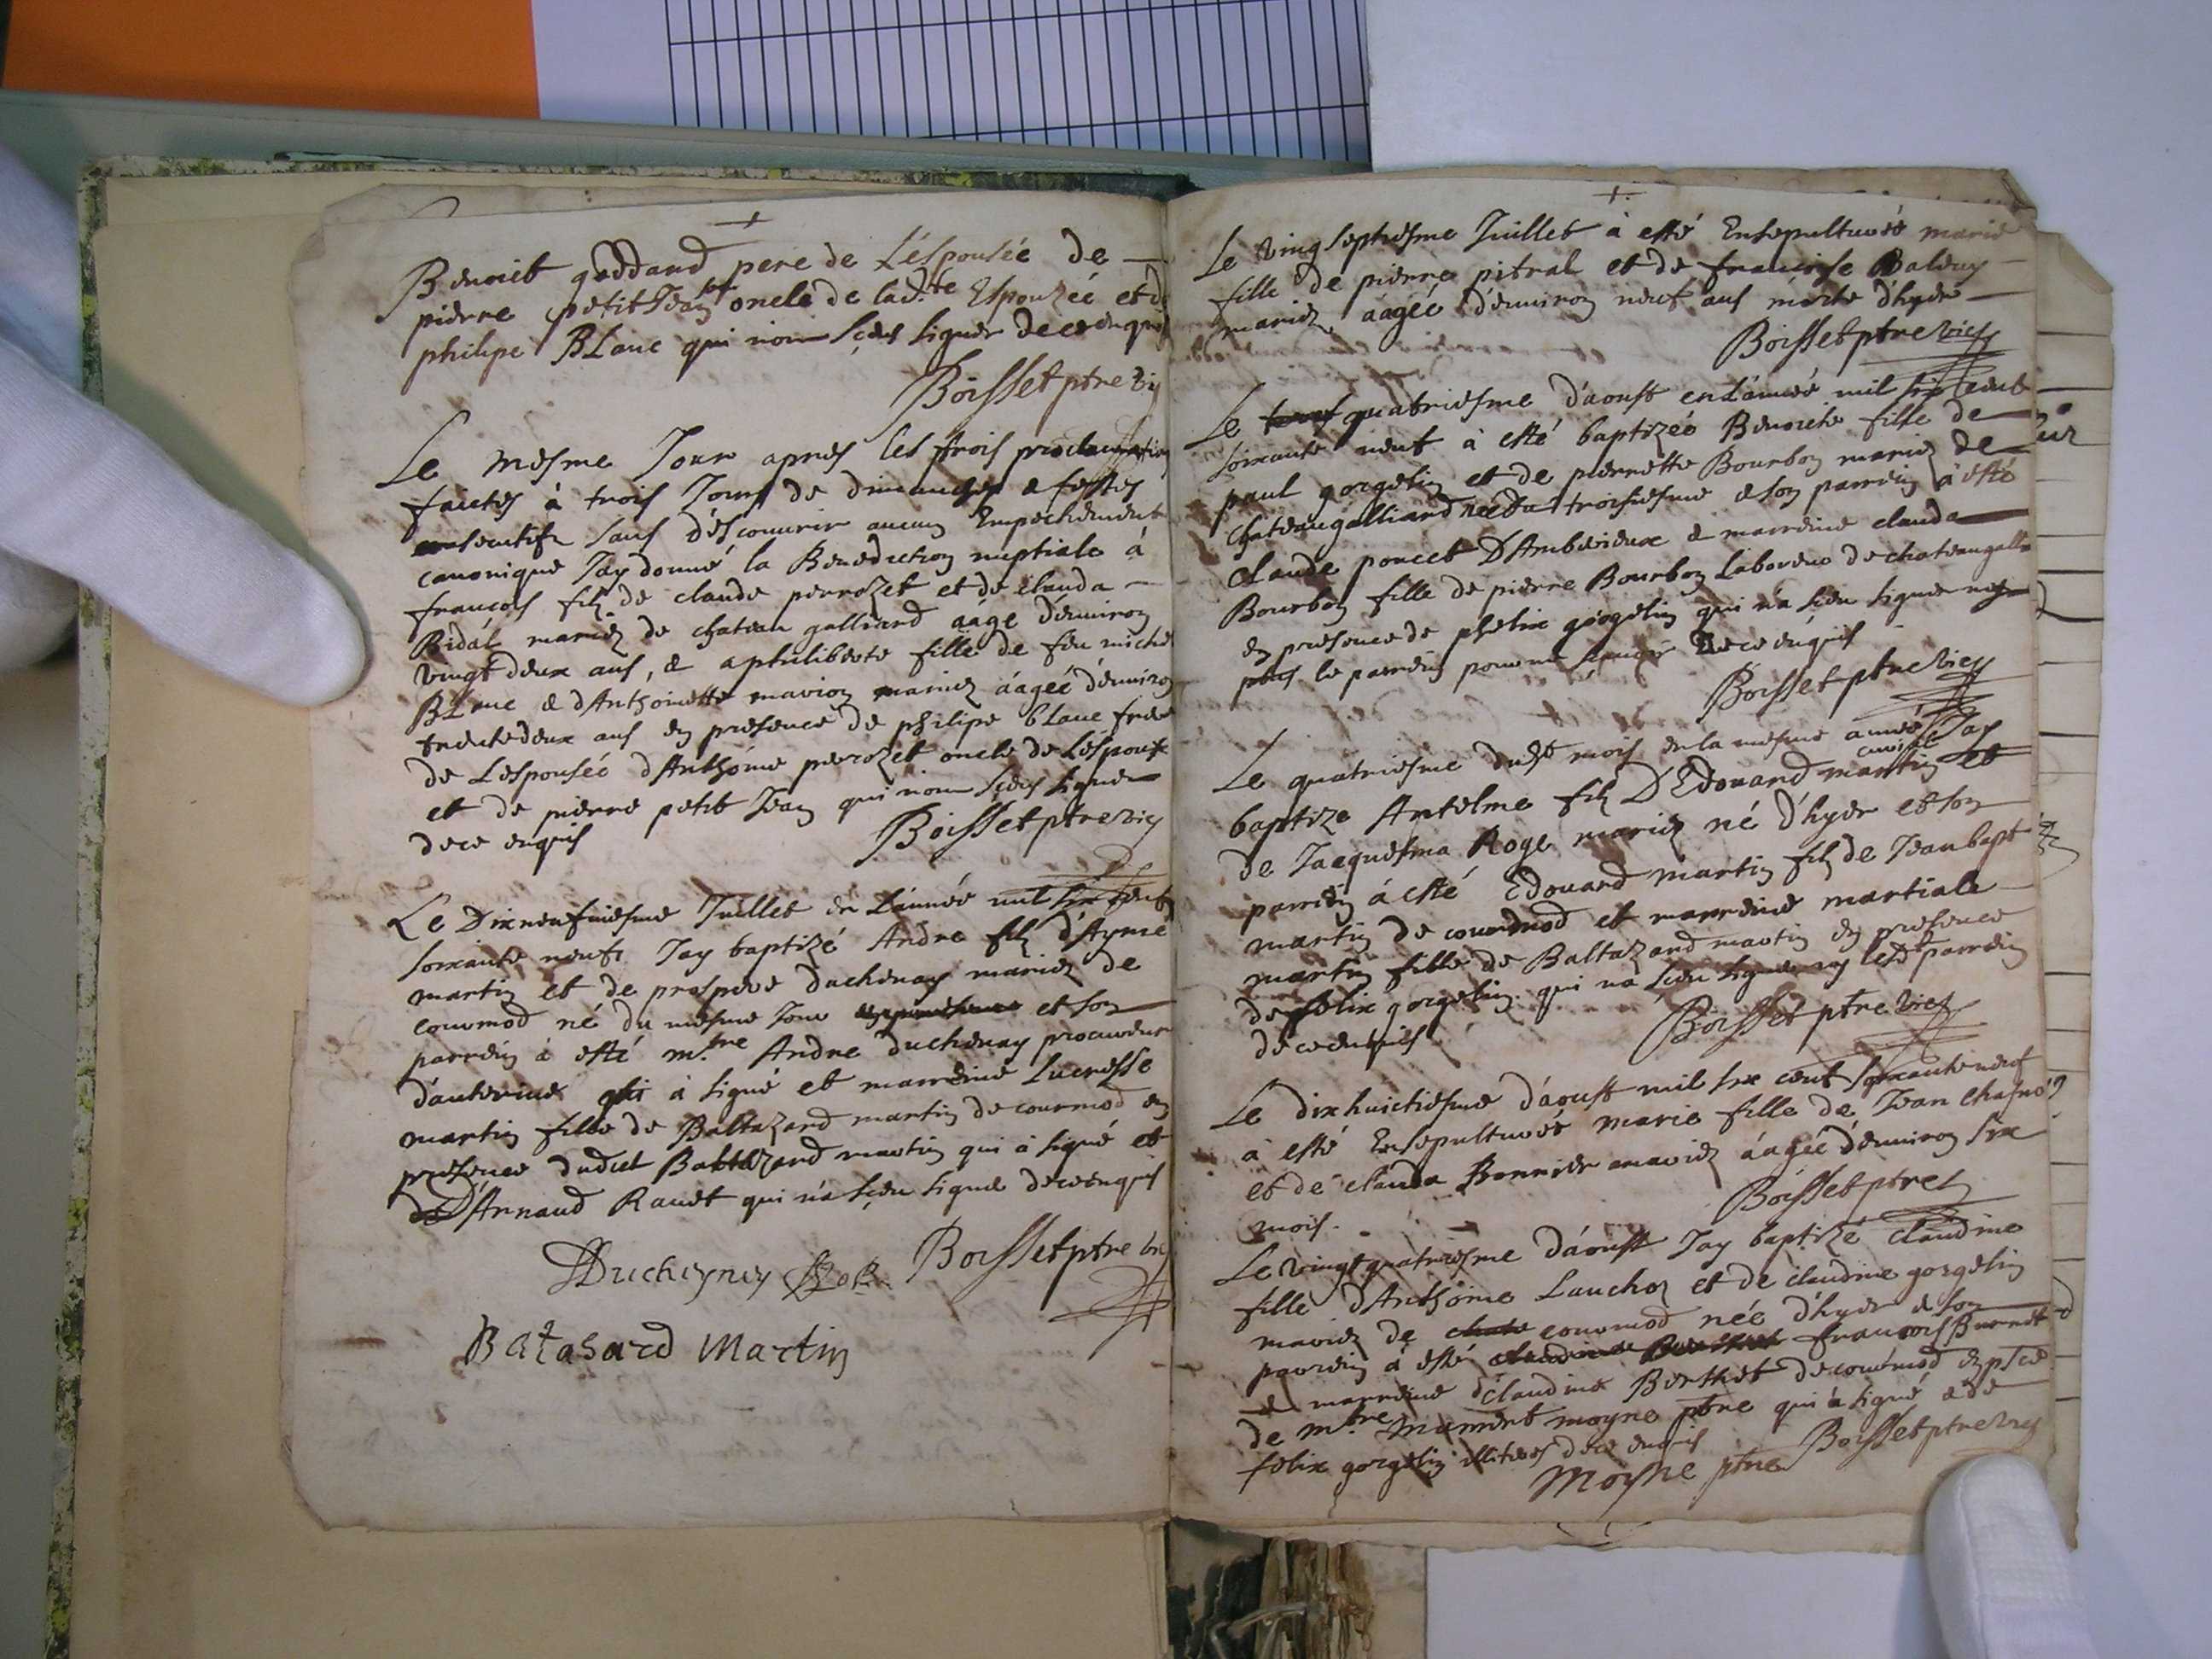 Benoict goddard pere de L'éspousée de
pierre petit Jean oncle de lad.te Espouzée et d
philipe BLanc qui nom sceu signer de ce enquis
Boisset ptre vic
Le mesme Jour apres les trois proclamation
faictes à trois Jours de dimanches & festes
consecutifz sans d'éscouurir aucun Empechement
canonique Jay donné la Benediction nuptiale à
françois filz de claude perrozet et de clauda
Bidal mariez de chateau galliard aágé denuiron
vingt deux ans, & a philiberte fille de feu michel
BLanc & d'Anthoinette marion mariez áagée d'enuiron
trentedeux ans en presence de philipe bLanc frere
de Lespousée d'Anthoine perrozet oncle de L'éspoux
et de pierre petit Jean qui nom sceu signer
de ce enquis
Boisset ptre vic
Le Dixneufuiesme Juillet en L'année mil six cent
soixante neuf Jay baptizé Andre filz d'Ayme
martin et de prospere duchenay mariez de
courmod né du mesme Jour et son
parrein à esté m.tre Andre duchenay procureur
d'auterine qui à signé et marreine Lucresse
martin fille de Baltazard martin de courmod en
presence dudict Baltazard martin qui à signé et
D'Arnaud Rauet qui n'a sceu signer de ce enquis
Ducheyney
Boisset ptre vic
Batasard Martin
Le vingt septiesme Juillet à esté Ensepulturée marie
fille de pierre pitral et de francoise Baleny
mariez, aágée d'enuiron neuf ans morte d'hyer
Boisset ptre vic
Le quatriesme d'aoust en L'année mil six cent
soixante neuf à esté baptizée Benoicte fille de
paul gorgelin et de pierrette Bourbon mariez de
chateaugalliard née du troisiesme & son parrein à esté
claude poncet D'Amberieux & marreine clauda
Bourbon fille de pierre Bourbon Laboreur de chateaugalli
en presence de phelix gorgelin qui n'a sceu signer ny
le parrein pour ne scauoir de ce enquis
Boisset ptre vic
Le quatriesme dudt mois en la mesme année Jay
baptize Antelme filz D'Edouard martin et
de Jacquesma Roge mariez né d'hyer et son
parrein á esté Edouard martin filz de Jean bapt
martin de courmod et marreine martiale
martin fille de Baltazard martin en presence
de felix gorgelin qui na sceu signer ny led parrein
de ce enquis
Boisset ptre vic
Le dixhuictiesme d'áoust mil six cent soixante neuf
à esté Ensepulturée marie fille de Jean chasne
et de clauda Bonnier mariez áagée d'enuiron six
mois.
Boisset ptre
Le vingt quatriesme d'áoust Jay baptizé claudine
fille d'Anthoine Lanchoz et de claudine gorgelin
mariez de courmod née d'hyer & son
parrein á esté francois Burnet
& marreine claudine Berthet de courmod en pnce
de m.tre mamert moyne ptre qui à signé & de
felix gorgelin illiteré de ce enquis
Boisset ptre vic
Moyne ptre